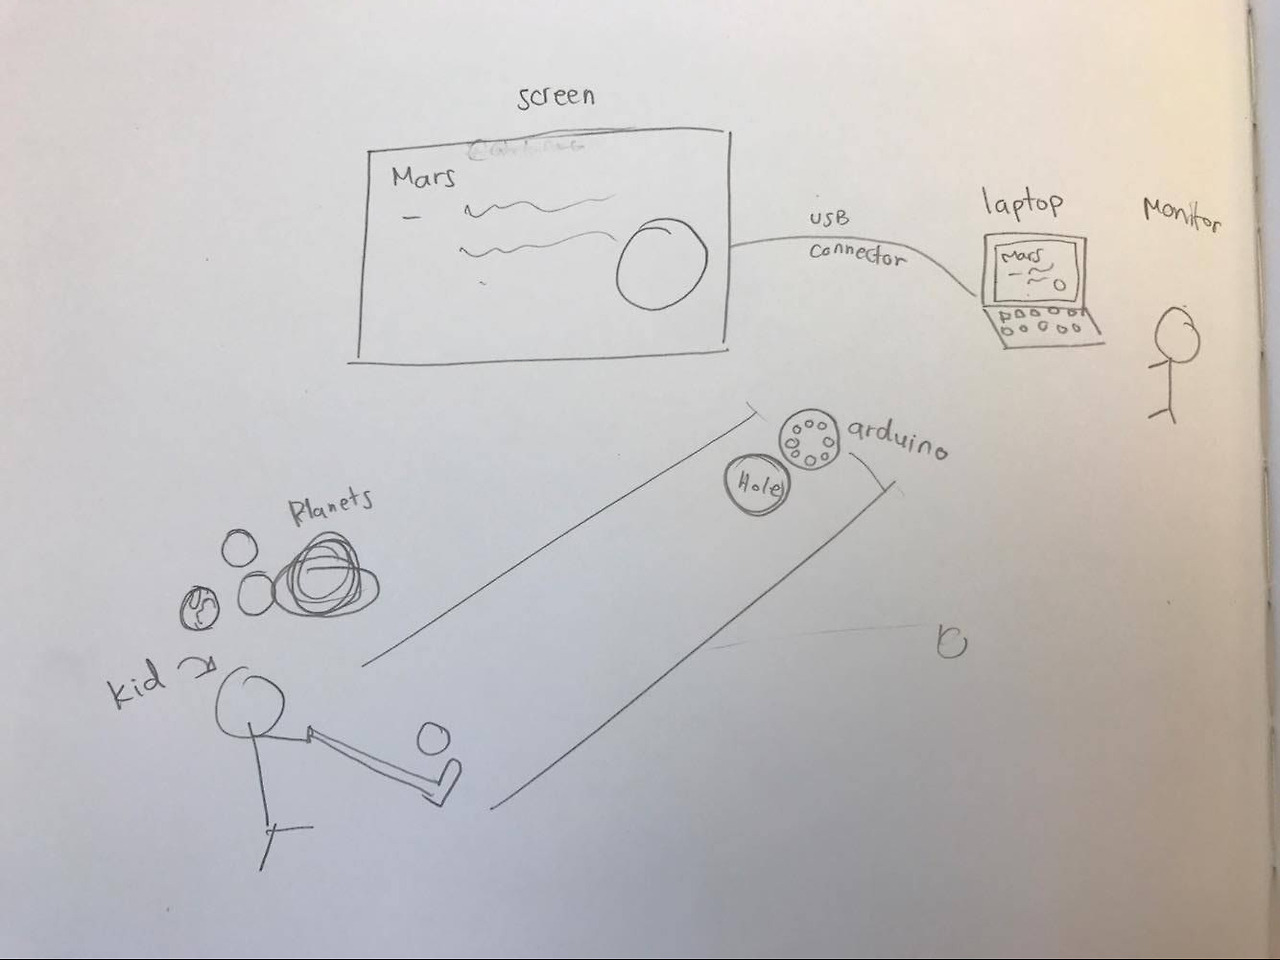 screen
Mars
USB
connector
laptop
Mars
Monitor
arduino
Hole
Planets
kid